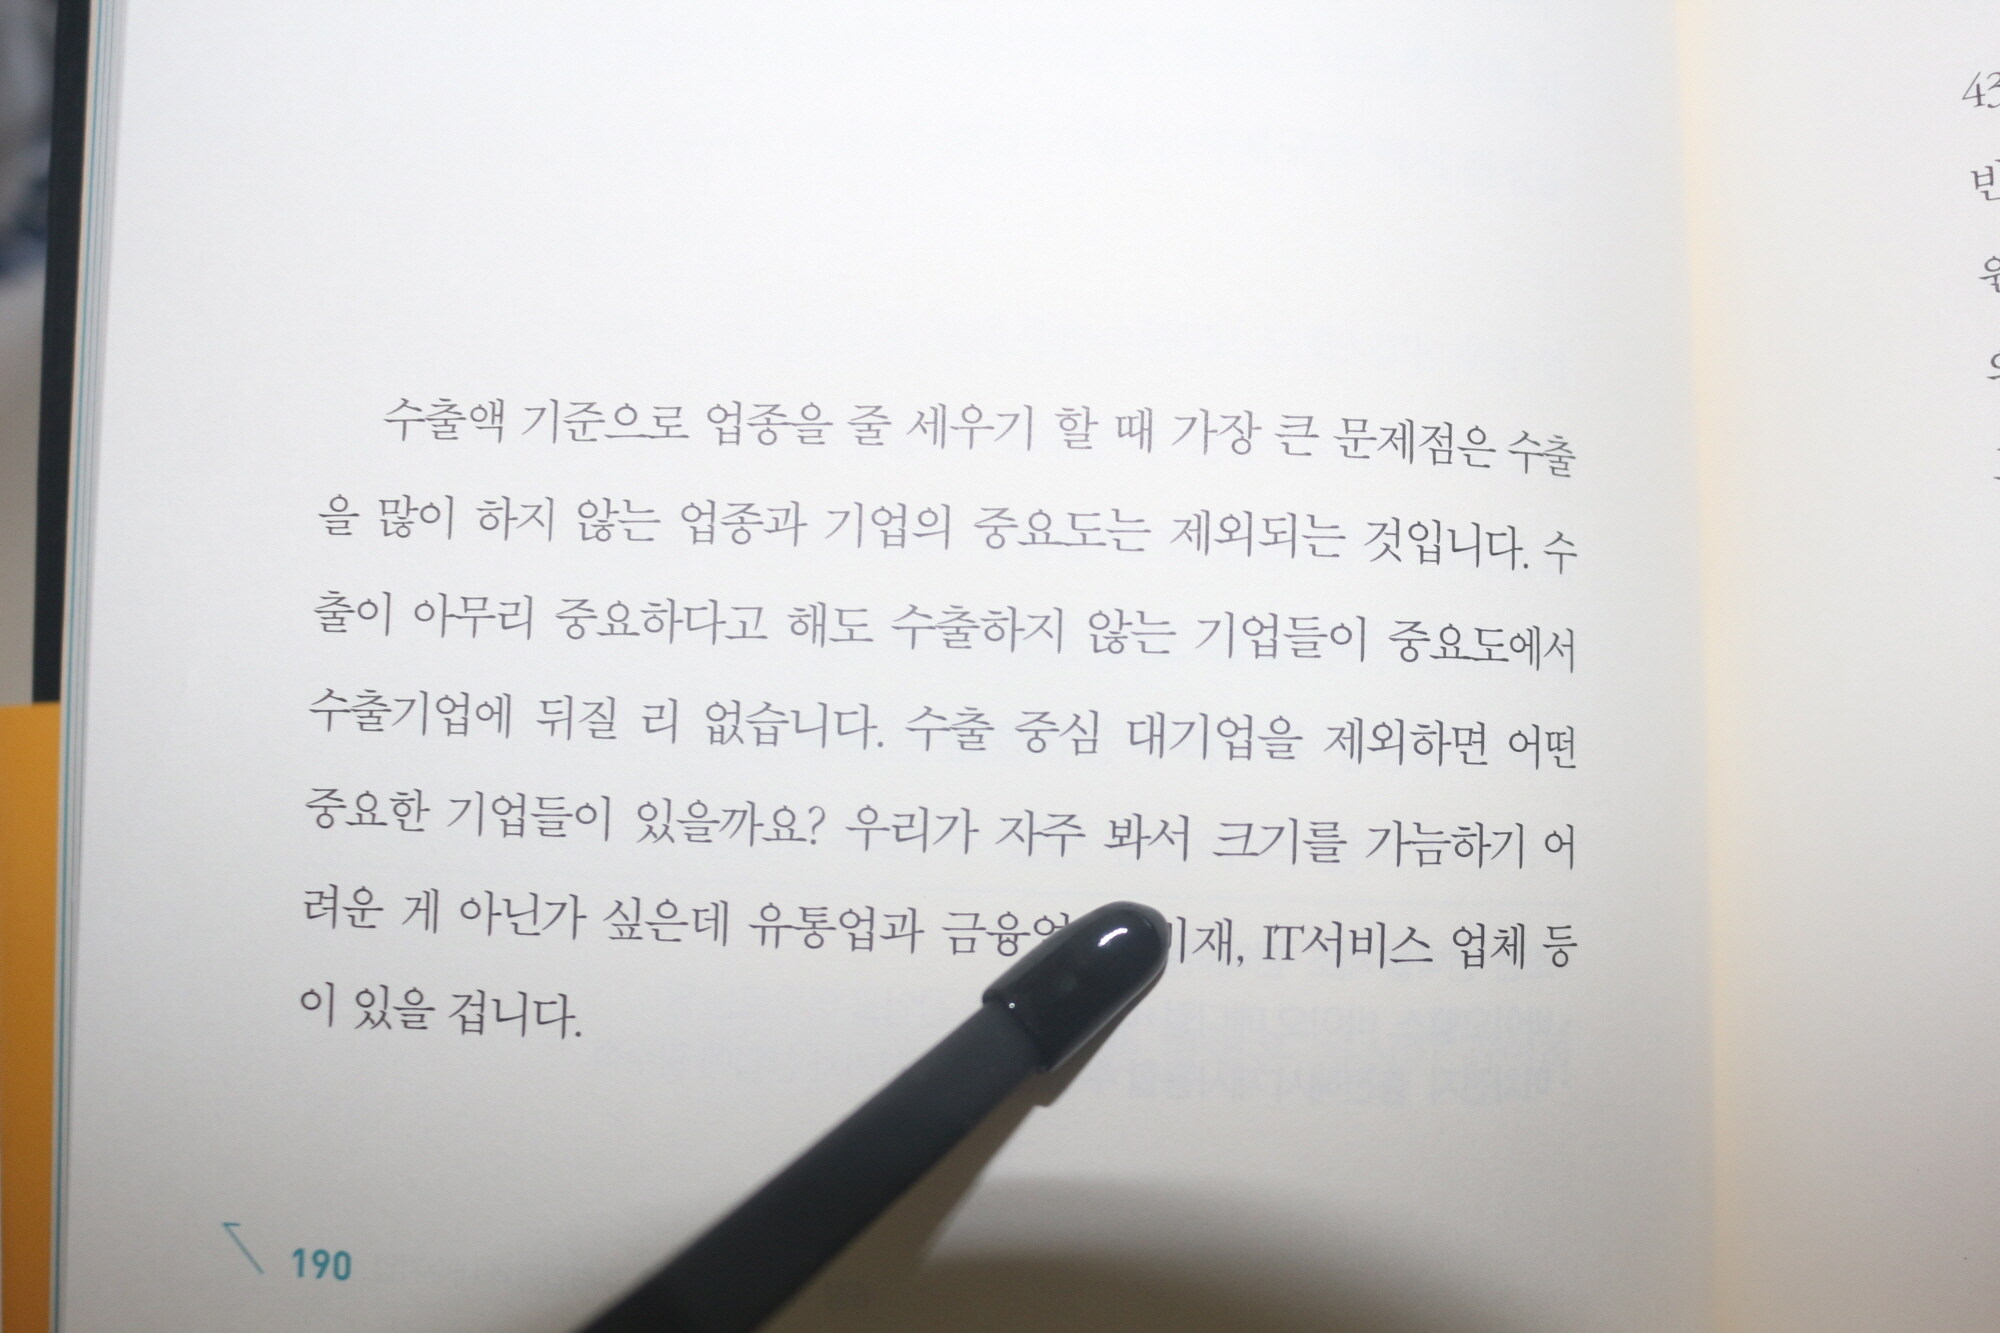 수출액 기준으로 업종을 줄 세우기 할 때 가장 큰 문제점은 수출
을 많이 하지 않는 업종과 기업의 중요도는 제외되는 것입니다. 수
출이 아무리 중요하다고 해도 수출하지 않는 기업들이 중요도에서
수출기업에 뒤질 리 없습니다. 수출 중심 대기업을 제외하면 어떤
중요한 기업들이 있을까요? 우리가 자주 봐서 크기를 가늠하기 어
려운 게 아닌가 싶은데 유통업과 IT서비스 업체 등
이 있을 겁니다.
190
43